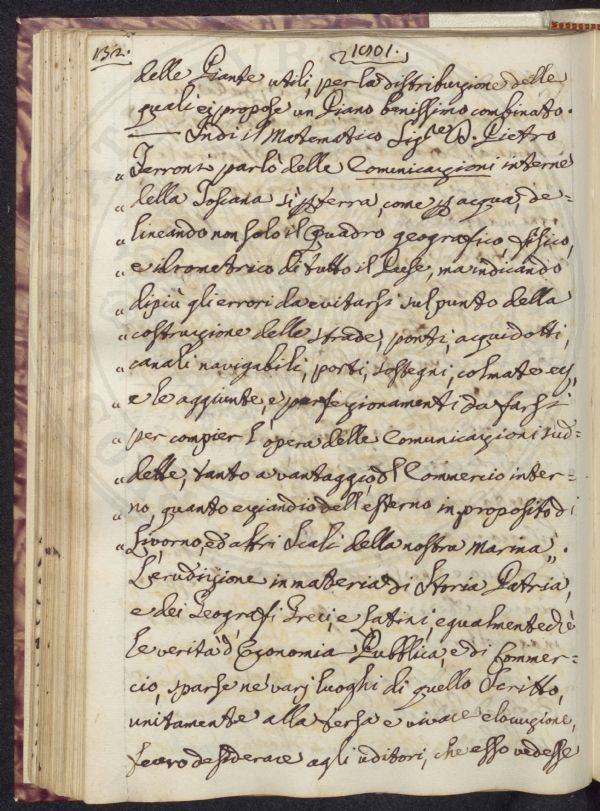 132.
1801.
delle Piante utili, per la distribuzione delle
quali ei propose un Piano benissimo combinato.
Indi il Matematico Sig.re D. Pietro
„ Ferroni parlò delle Comunicazioni interne
„ della Toscana sì p terra, come p acqua, de=
„ lineando non solo il Quadro geografico, fisico,
„ e idrometrico di tutto il Paese, ma indicando
„ dipiù gli errori da evitarsi sul punto della
„ costruzione delle strade, ponti, acquidotti,
„ canali navigabili, porti, sostegni, colmate
„ e le aggiunte, e perfezionamenti da farsi
„ per compier l'opera delle Comunicazioni sud=
„ dette, tanto a vantaggio d Commercio inter=
„ no, quanto eziandio dell'esterno in proposito di
„ Livorno, ed altri Scali della nostra Marina„.
L'erudizione in materia di Storia Patria,
e dei Geografi Greci, e Latini, egualmente chè
le verità d'Economia Pubblica, e di Commer=
cio, sparse ne' varj luoghi di quello Scritto,
unitamente alla tersa e vivace elocuzione,
fecero desiderare agli uditori, che esso vedesse